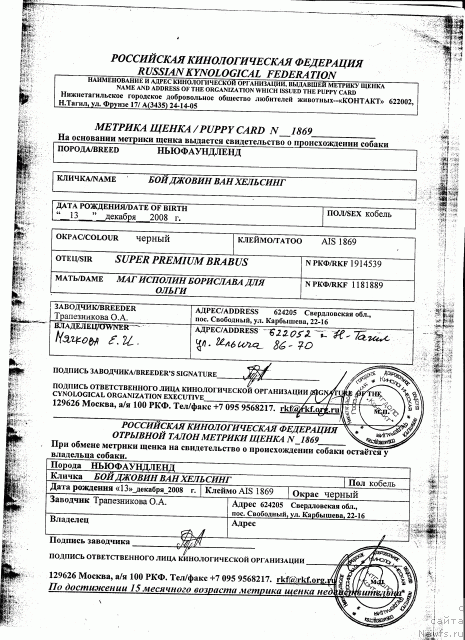 РОССИЙСКАЯ КИНОЛОГИЧЕСКАЯ ФЕДЕРАЦИЯ
RUSSIAN KYNOLOGICAL FEDERATION
НАИМЕНОВАНИЕ И АДРЕС КИНОЛОГИЧЕСКОЙ ОРГАНИЗАЦИИ, ВЫДАВШЕЙ МЕТРИКУ ЩЕНКА
NAME AND ADDRESS OF THE ORGANIZATION WHICH ISSUED THE PUPPY CARD
Нижнетагильское городское добровольное общество любителей животных-«КОНТАКТ» 622002,
Н.Тагил, ул Фрунзе 17/ А(3435) 24-14-05
МЕТРИКА ЩЕНКА / PUPPY CARD N 1869
На основании метрики щенка выдается свидетельство о происхождении собаки
ПОРОДА/BREED НЬЮФАУНДЛЕНД
КЛИЧКА/NAME БОЙ ДЖОВИН ВАН ХЕЛЬСИНГ
ДАТА РОЖДЕНИЯ/DATE OF BIRTH
"_13_" декабря 2008 г. ПОЛ/SEX кобель
ОКРАС/COLOUR черный КЛЕЙМО/TATOO AIS 1869
ОТЕЦ/SIR SUPER PREMIUM BRABUS N РКФ/RKF 1914539
МАТЬ/DAME МАГ ИСПОЛИН БОРИСЛАВА ДЛЯ N РКФ/RKF 1181889
ОЛЬГИ
ЗАВОДЧИК/BREEDER АДРЕС/ADDRESS 624205 Свердловская обл.,
Трапезникова О.А. пос. Свободный, ул. Карбышева, 22-16
ВЛАДЕЛЕЦ/OWNER АДРЕС/ADDRESS 622052 г Н-Тагил
Мячкова Е.И. ул. Ильича 86-70
ПОДПИСЬ ЗАВОДЧИКА/BREEDER'S SIGNATURE
ПОДПИСЬ ОТВЕТСТВЕННОГО ЛИЦА КИНОЛОГИЧЕСКОЙ ОРГАНИЗАЦИИ /SIGNATURE OF THE
CYNOLOGICAL ORGANIZATION EXECUTIVE
129626 Москва, а/я 100 РКФ. Тел/факс +7 095 9568217. rkf@rkf.org.ru М.П.
РОССИЙСКАЯ КИНОЛОГИЧЕСКАЯ ФЕДЕРАЦИЯ
ОТРЫВНОЙ ТАЛОН МЕТРИКИ ЩЕНКА N_1869
При обмене метрики щенка на свидетельство о происхождении собаки остаётся у
владельца собаки.
Порода НЬЮФАУНДЛЕНД
Кличка БОЙ ДЖОВИН ВАН ХЕЛЬСИНГ Пол кобель
Дата рождения «13»_декабря_2008 г. Клеймо AIS 1869 Окрас черный
Заводчик Трапезникова О.А. Адрес 624205 Свердловская обл.,
пос. Свободный, ул. Карбышева, 22-16
Владелец Адрес
Подпись заводчика
ПОДПИСЬ ОТВЕТСТВЕННОГО ЛИЦА КИНОЛОГИЧЕСКОЙ ОРГАНИЗАЦИИ
129626 Москва, а/я 100 РКФ. Тел/факс +7 095 9568217. rkf@rkf.org.ru М.П.
По достижении 15 месячного возраста метрика щенка недействительна
сайта
Newfs.ru